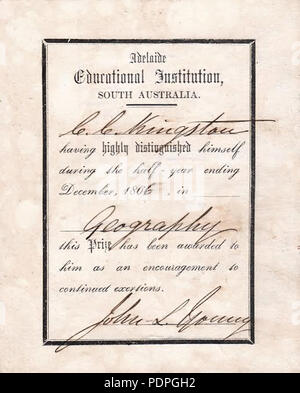 Adelaide
Educational Institution,
SOUTH AUSTRALIA.
C. C. Kingston
having highly distinguished himself
during the half-year ending
December, 1866, in
Geography
this Prize has been awarded to
him as an encouragement to
continued exertions.
John L. Young
alamy stock photo
PDPGH2